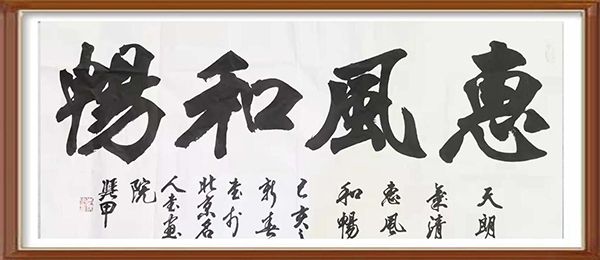 惠風和暢
天朗
氣清
惠風
和暢
己亥之
新春
書於
北京名
人書畫
院